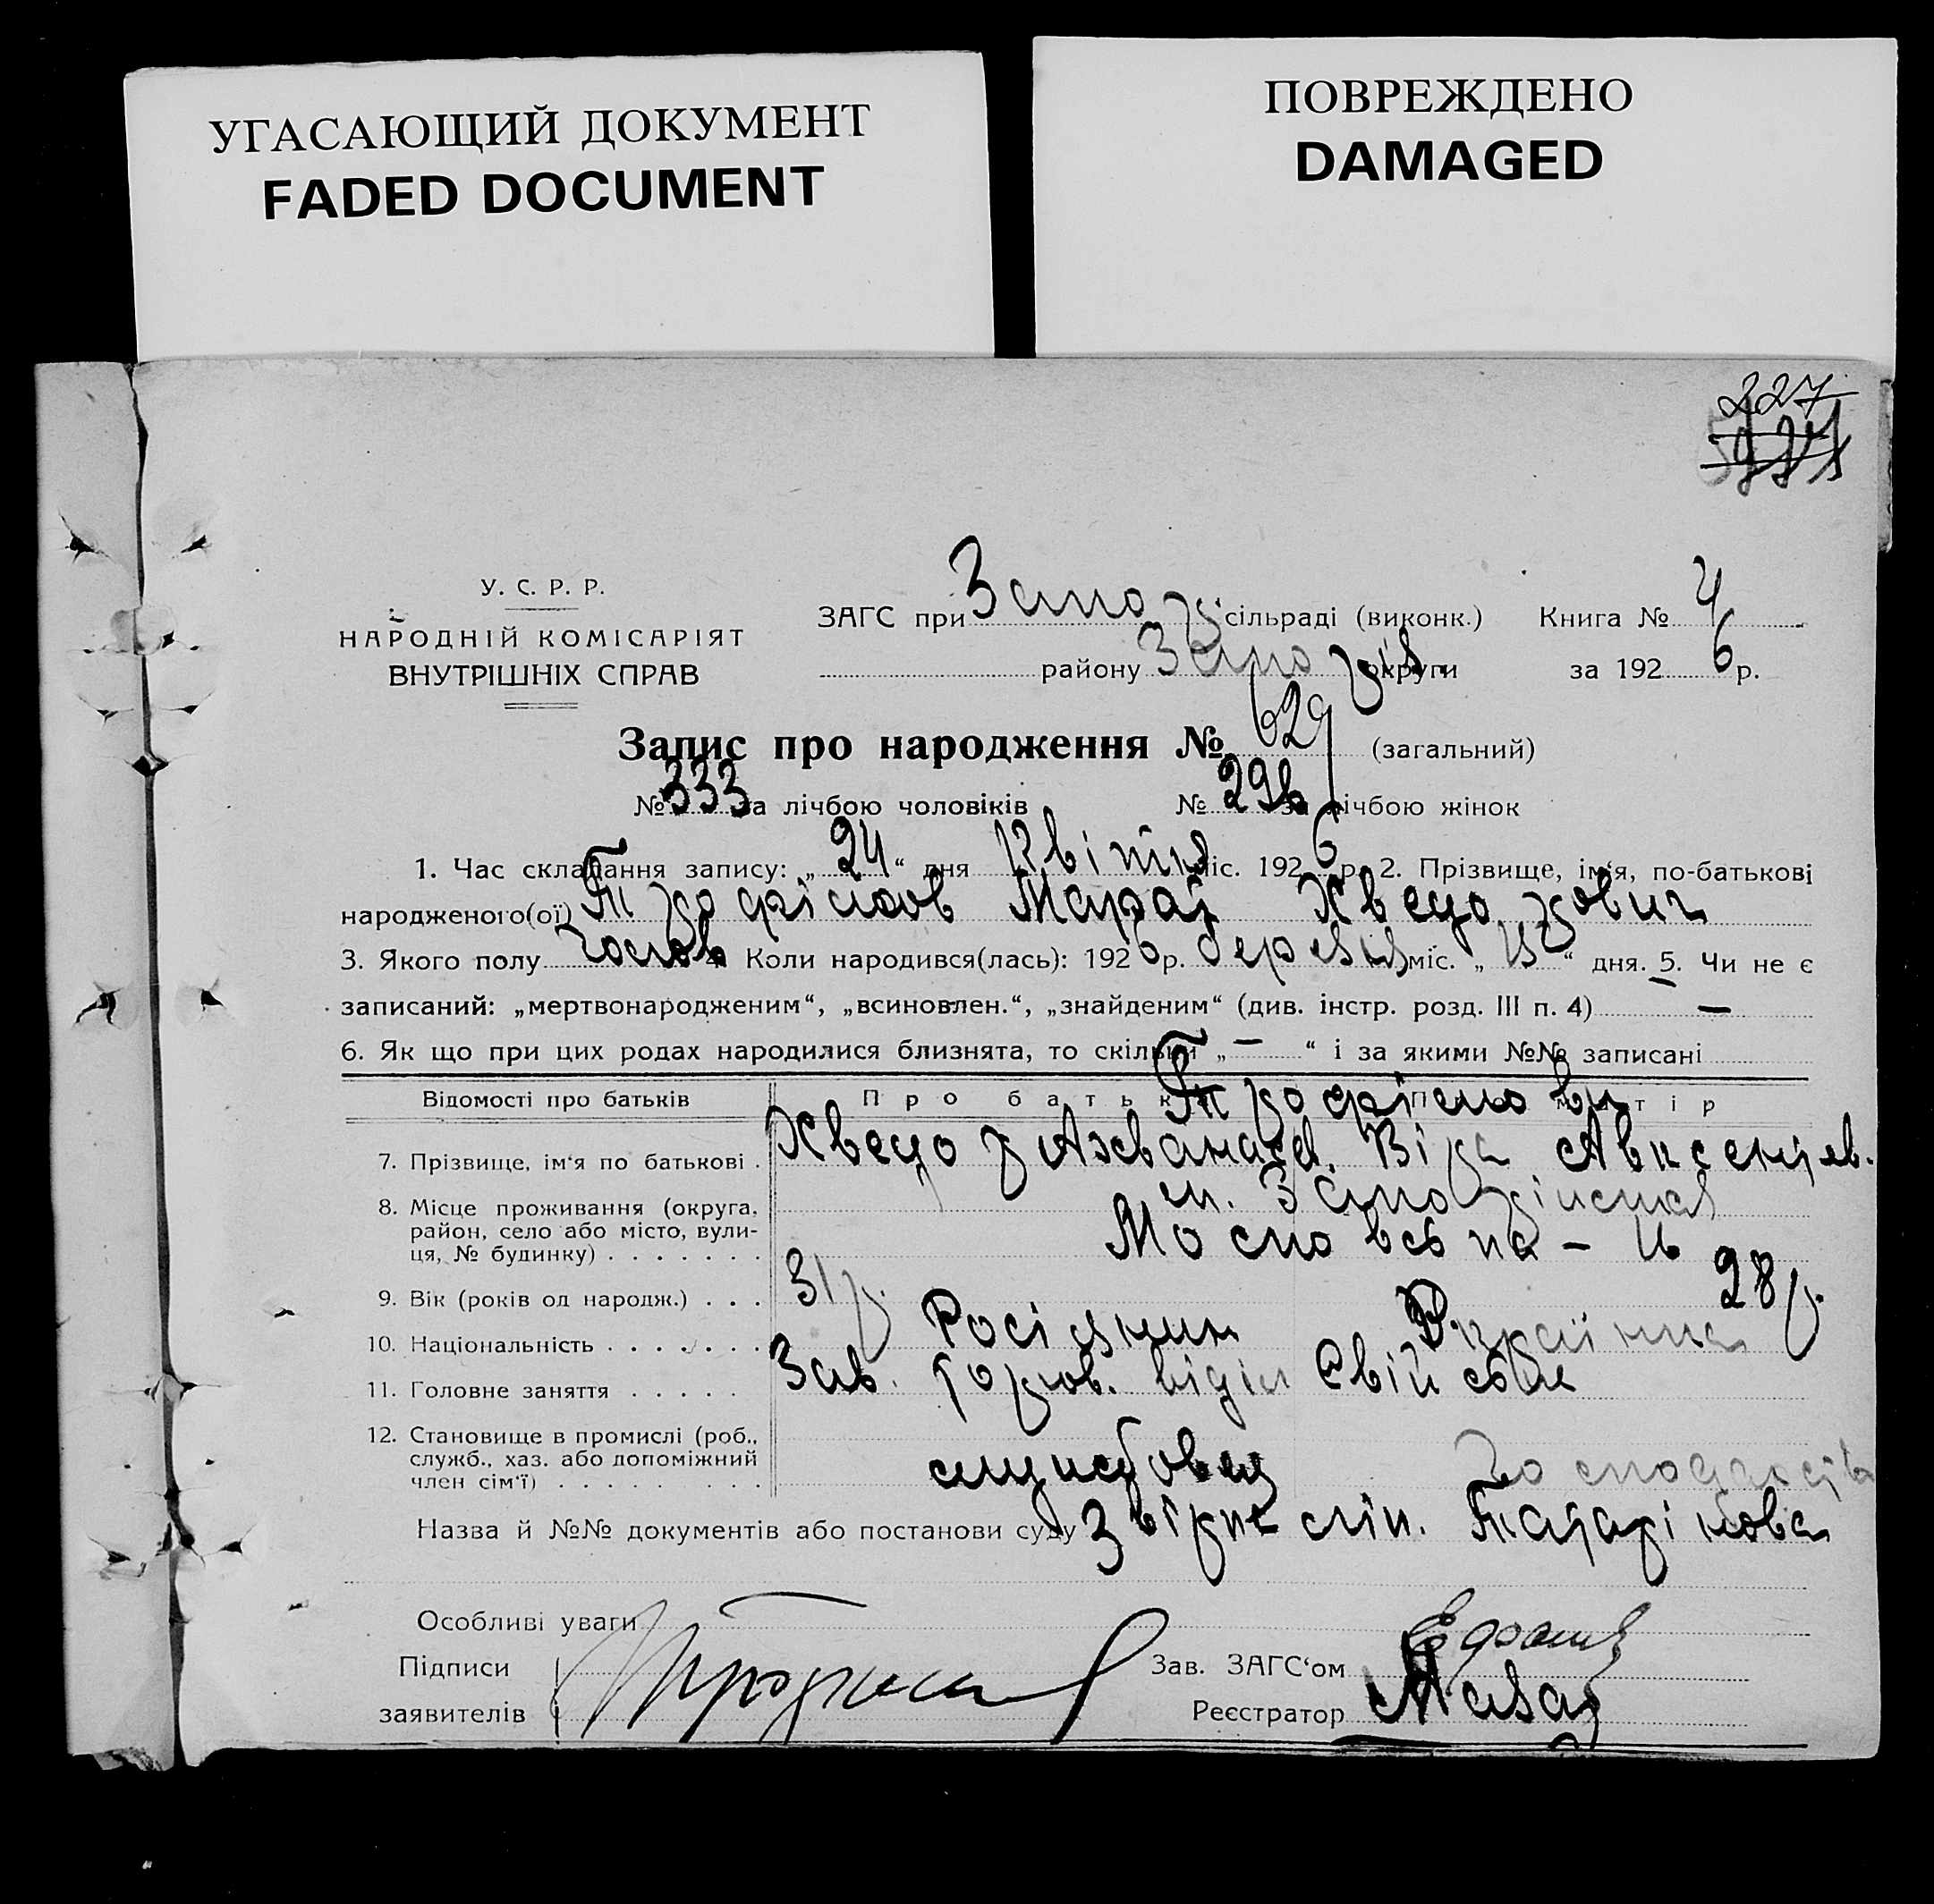 УГАСАЮЩИЙ ДОКУМЕНТ
FADED DOCUMENT
ПОВРЕЖДЕНО
DAMAGED
227
У. С. Р. Р.
НАРОДНІЙ КОМІСАРІЯТ
ВНУТРІШНІХ СПРАВ
ЗАГС при Запор сільраді (виконк.) Книга № 4
району Запоріз. округи за 1926 р.
Запис про народження № 629 (загальний)
№ 333 за лічбою чоловіків № 296 за лічбою жінок
1. Час складання запису: „24“ дня Квітня міс. 1926 р. 2. Прізвище, ім‘я, по-батькові
народженого(ої) Трофімов Марат Хведорович
3. Якого полу чолов 4. Коли народився(лась): 1926 р. березня міс. „15“ дня. 5. Чи не є
записаний: „мертвонародженим“, „всиновлен.“, „знайденим“ (див. інстр. розд. III п. 4) —
6. Як що при цих родах народилися близнята, то скільки „—“ і за якими №№ записані
Відомості про батьків Про батька Про матір
Трофімови
7. Прізвище, ім‘я по батькові . Хведор Ахванас. Віра Авксентієв.
8. Місце проживання (округа, район, село або місто, вулиця, № будинку) . . . . . . . м. Запоріжжя
Московська – 16
9. Вік (років од народж.) . . . 31 р. 28 р.
10. Національність . . . . . . . Росіянин Українка
11. Головне заняття . . . . . Зав. торгов. відділ
12. Становище в промислі (роб., служб., хаз. або допоміжний член сім‘ї) . . . . . . . . службовец
Назва й №№ документів або постанови суду
Особливі уваги
Підписи
заявителів
Зав. ЗАГС‘ом
Реєстратор